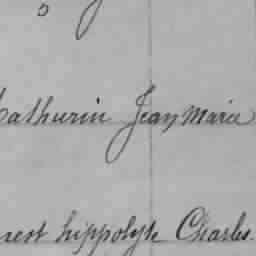 athurin Jean Marie
nest hippolyte Charles